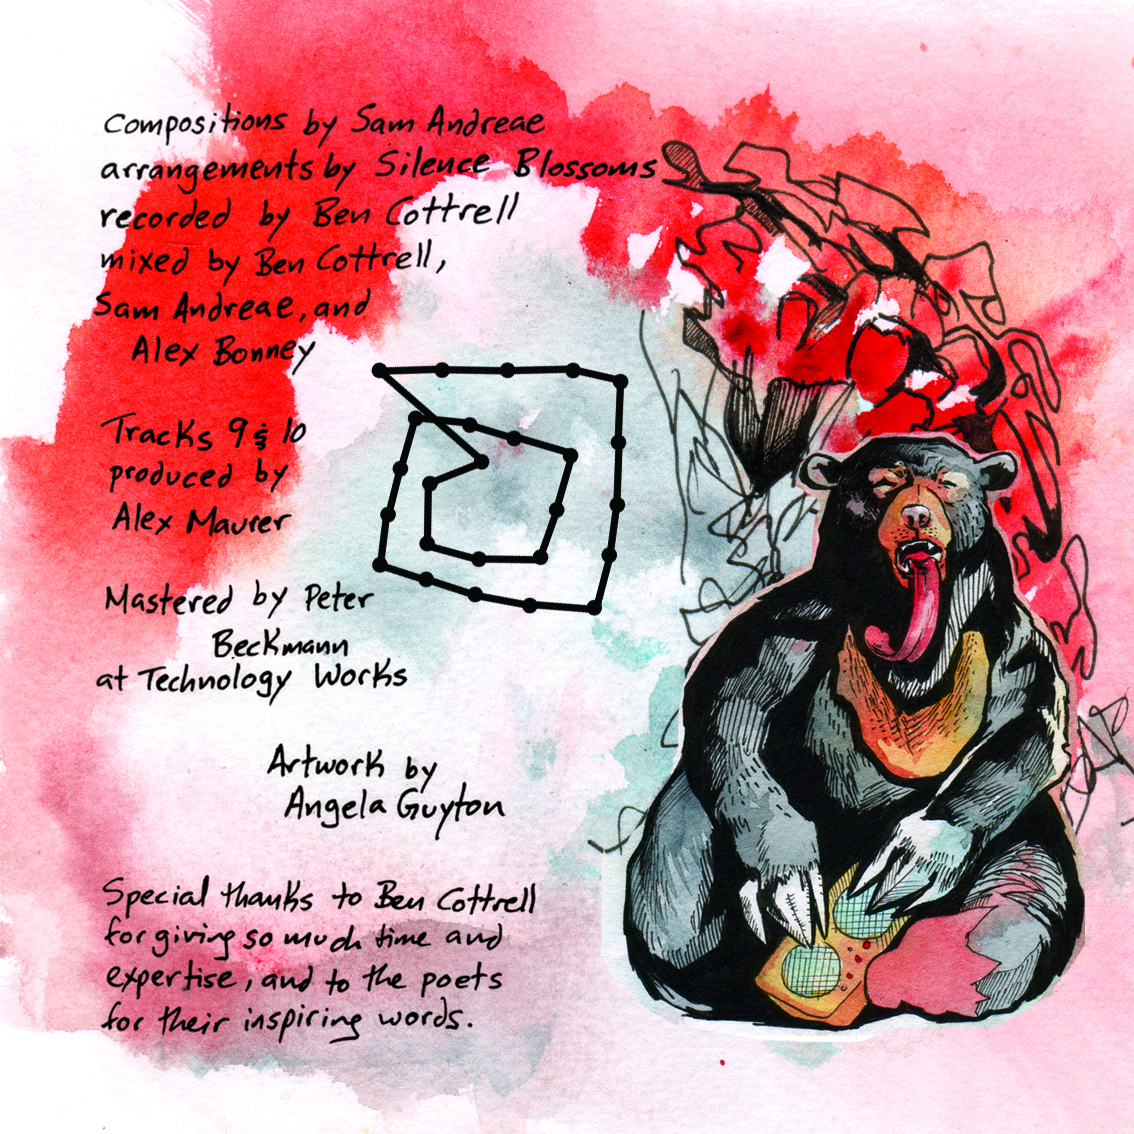 compositions by Sam Andreae
arrangements by Silence Blossoms
recorded by Ben Cottrell
mixed by Ben Cottrell,
Sam Andreae, and
Alex Bonney
Tracks 9 & 10
produced by
Alex Maurer
Mastered by Peter
Beckmann
at Technology Works
Artwork by
Angela Guyton
Special thanks to Ben Cottrell
for giving so much time and
expertise, and to the poets
for their inspiring words.